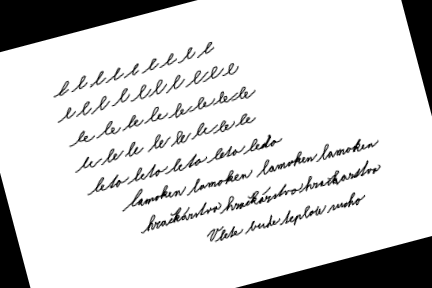 l l l l l l l l l
l l l l l l l l l
le le le le le le le le
le le le le le le le le
leto leto leto leto ledo
lamoken lamoken lamoken lamoken
hračkárstvo hračkárstvo hračkárstvo
V lete bude teplo